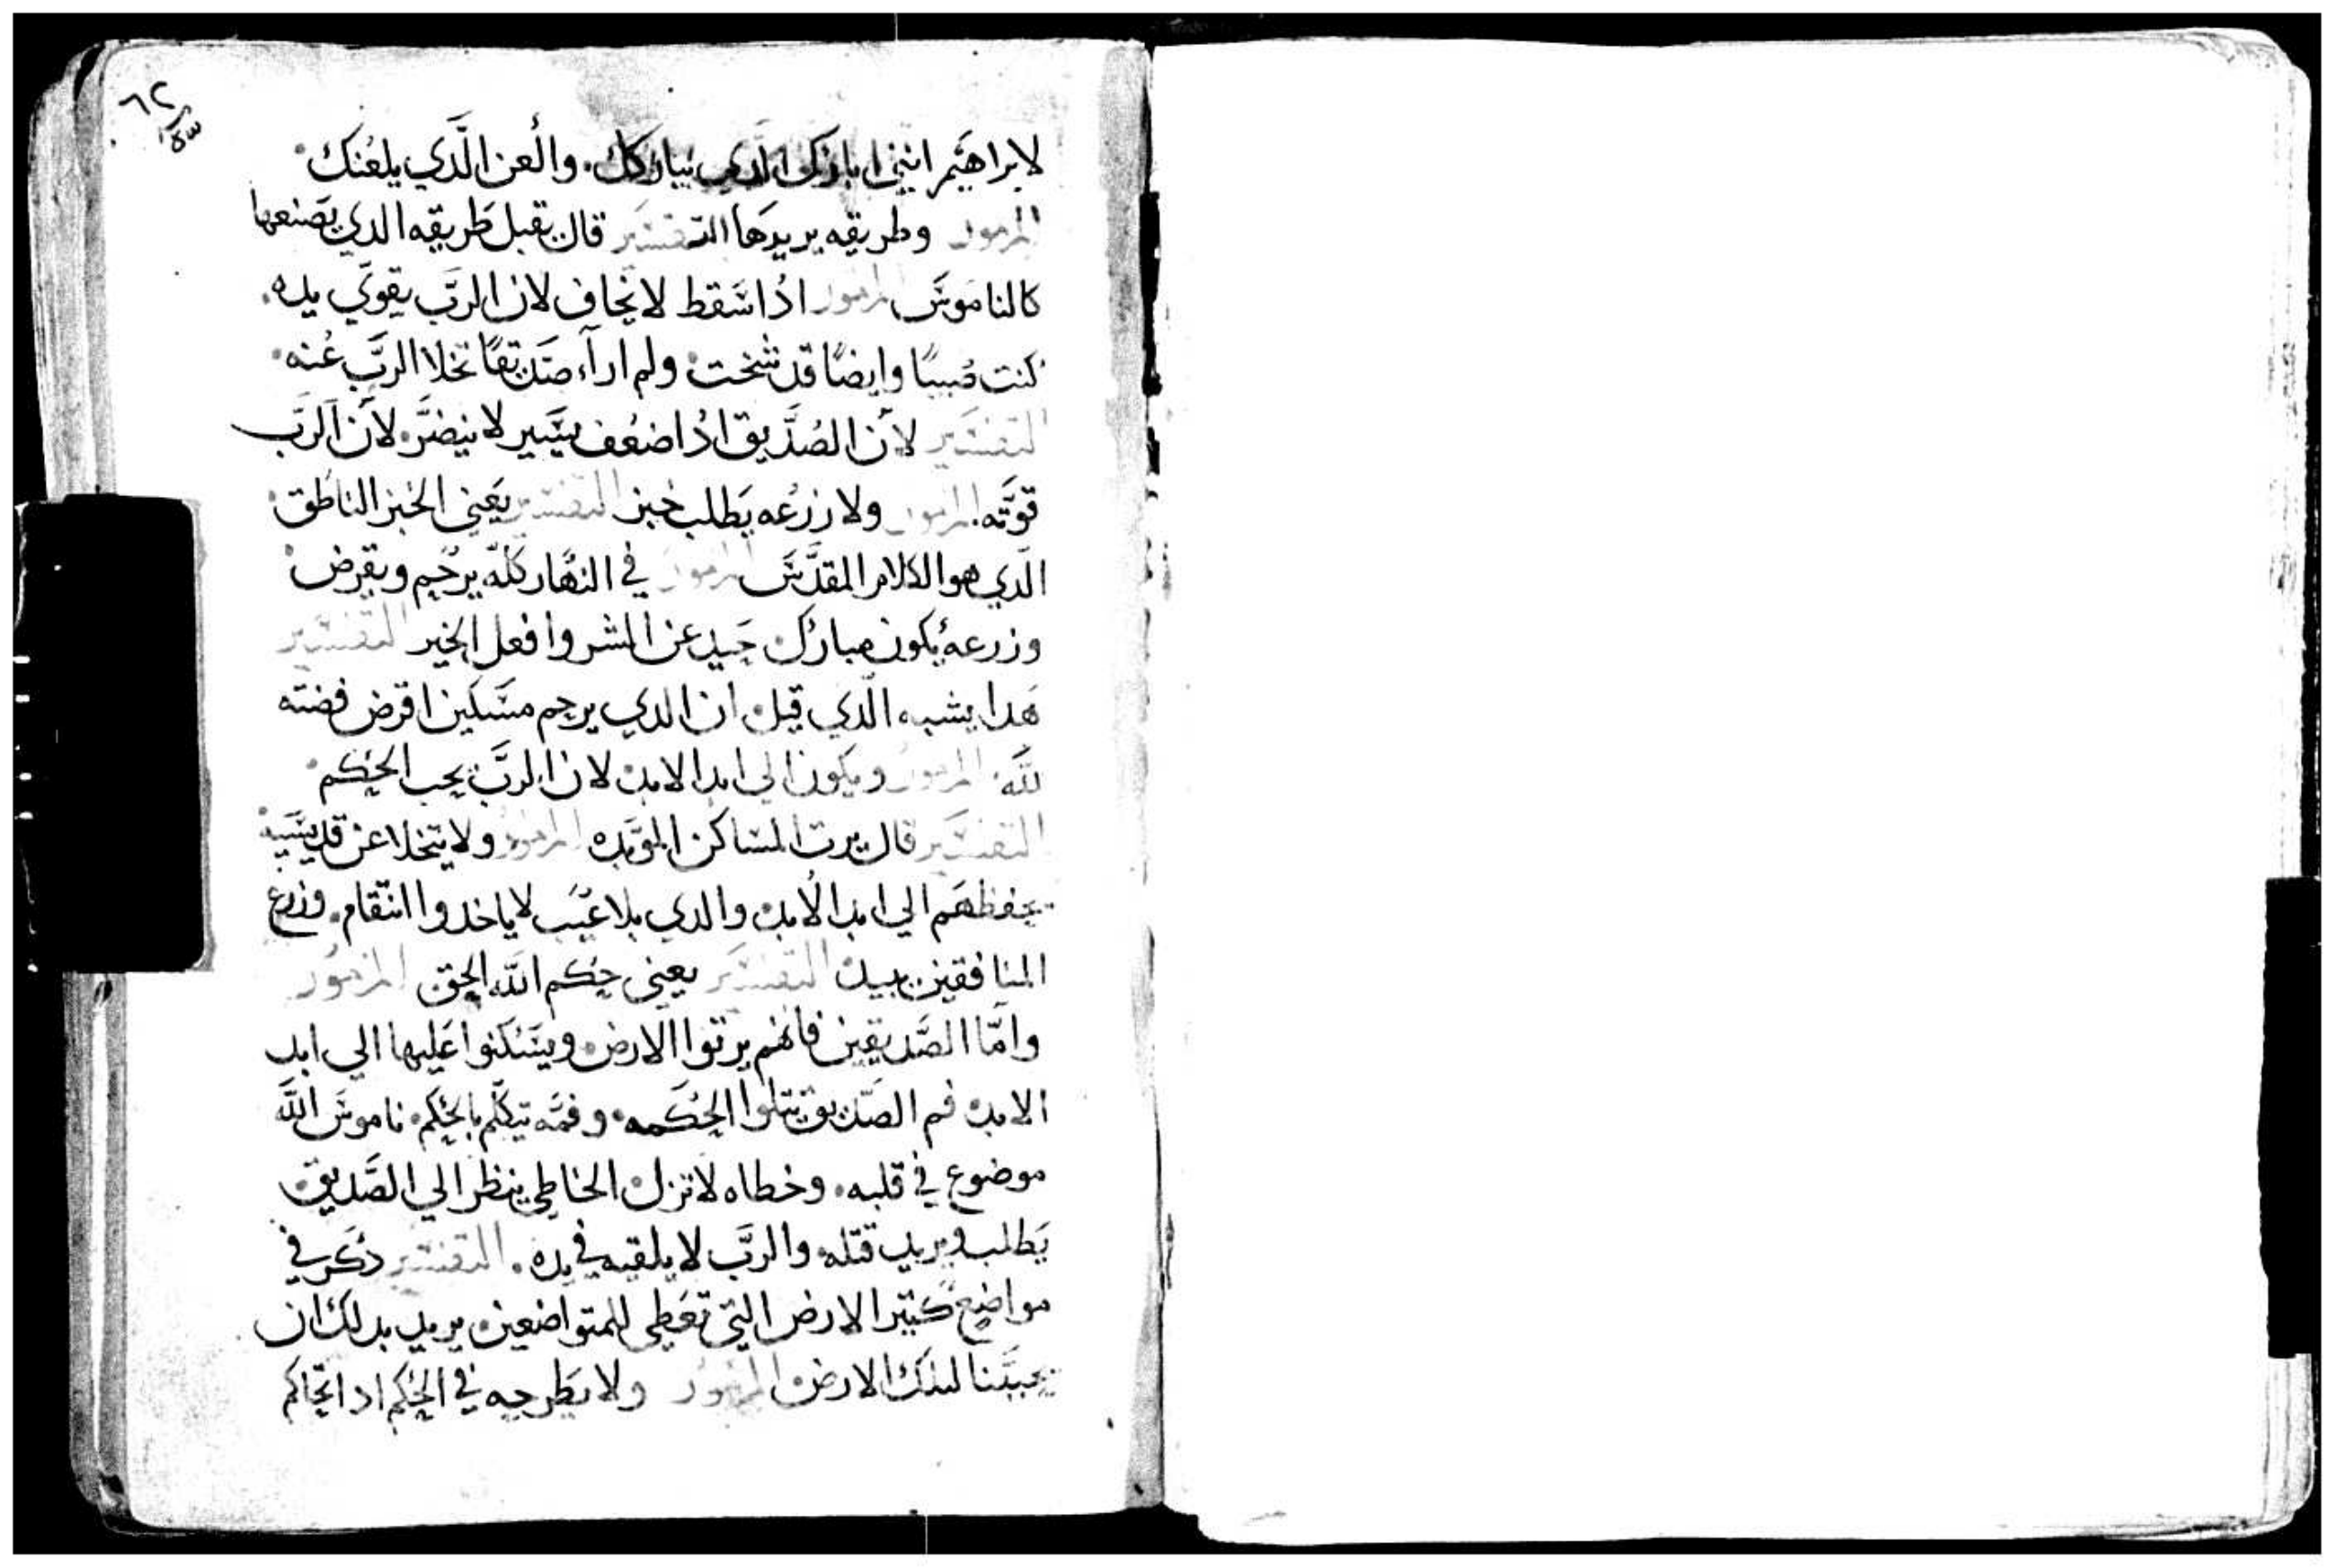 ٦٢
١٥٣
لابراهيم انني ابارك الدي يباركك. والعن الَّدي يلعنك.
المزمور وطريقه يريدها التفسير قال يقبل طريقه الدي يصنعها
كالناموس المزمور ادا سقط لا يخاف لان الربَّ يقوي يده.
كنت صبيًا وايضًا قد شخت. ولم اراء صديقًا تخلا الربَّ عنه.
التفسير لأن الصدَّيق ادا ضعف يسير لا ينضرَّ. لأن الرَّب
قوَّته. المزمور ولا زرعه يطلب خبز التفسير يعني الخبز الناطق.
الَّدي هو الكلام المقدَّس المزمور في النهار كلَّه يرحم ويقرض.
وزرعه يكون مبارك. حيد عن الشر وافعل الخير التفسير
هدا يشبه الَّدي قيل. ان الدي يرحم مسَّكين اقرض فضته
للَّه. المزمور ويكون الي ابد الابد. لان الربَّ يحب الحكم.
التفسير قال يرت المساكن الموَّبده المزمور ولا يتخلا عن قديسَيه.
يحفظهم الي ابد الابد. والدي بلا عيب لا ياخدوا انتقام. وزرع
المنافقين يبيد. التفسير يعني حكم اللَّه الحق المزمور
وامَّا الصَّديقين فانهم يرتوا الارض. ويسَكنوا عليها الي ابد
الابد. فم الصدّيق يتلوا الحكمه. وفمَّه تيكلَّم بالحكم. ناموسَ اللَّه
موضوع في قلبه. وخطاه لا تزل. الخاطي ينظر الي الصَّديق.
يطلب ويريد قتله. والربَّ لا يلقيه في يده. التفسير دكر في
مواضع كتير الارض التي تعطي للمتواضعين. يريد بدلك ان
لتلك الارض. المزمور ولا يطرحه في الحكم ادا تحاكم